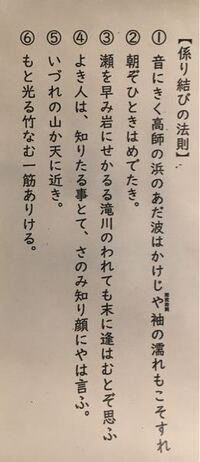 【係り結びの法則】
① 音にきく高師の浜のあだ波はかけじや袖の濡れもこそすれ
② 朝ぞひときはめでたき。
③ 瀬を早み岩にせかるる滝川のわれても末に逢はむとぞ思ふ
④ よき人は、知りたる事とて、さのみ知り顔にやは言ふ。
⑤ いづれの山か天に近き。
⑥ もと光る竹なむ一筋ありける。